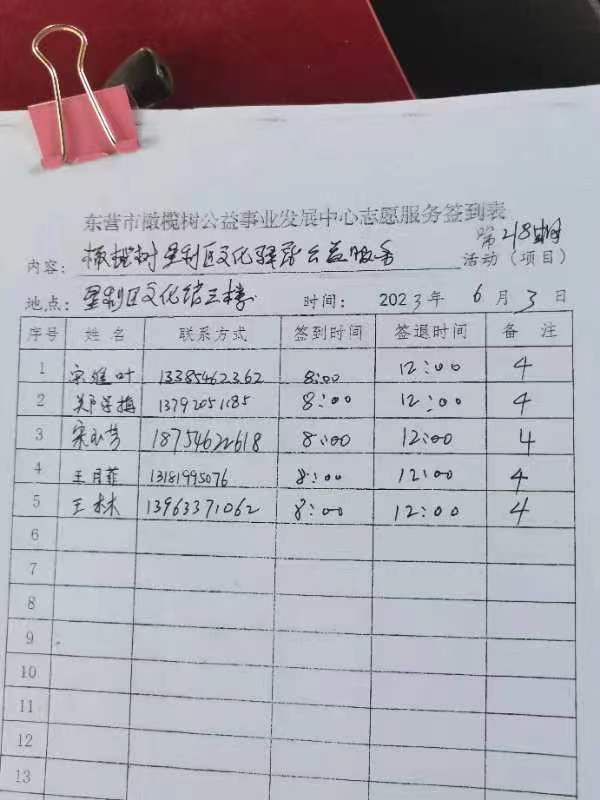 东营市橄榄树公益事业发展中心志愿服务签到表
第218期
内容：橄榄树垦利区文化驿站公益服务 活动（项目）
地点：垦利区文化馆三楼 时间：2023年6月3日
序号 姓名 联系方式 签到时间 签退时间 备注
1 宋 叶 13385462362 8:00 12:00 4
2 13792051185 8:00 12:00 4
3 宋玉芳 18754622618 8:00 12:00 4
4 王月菲 13181995076 8:00 12:00 4
5 王林 13963371062 8:00 12:00 4
6
7
8
9
10
11
12
13